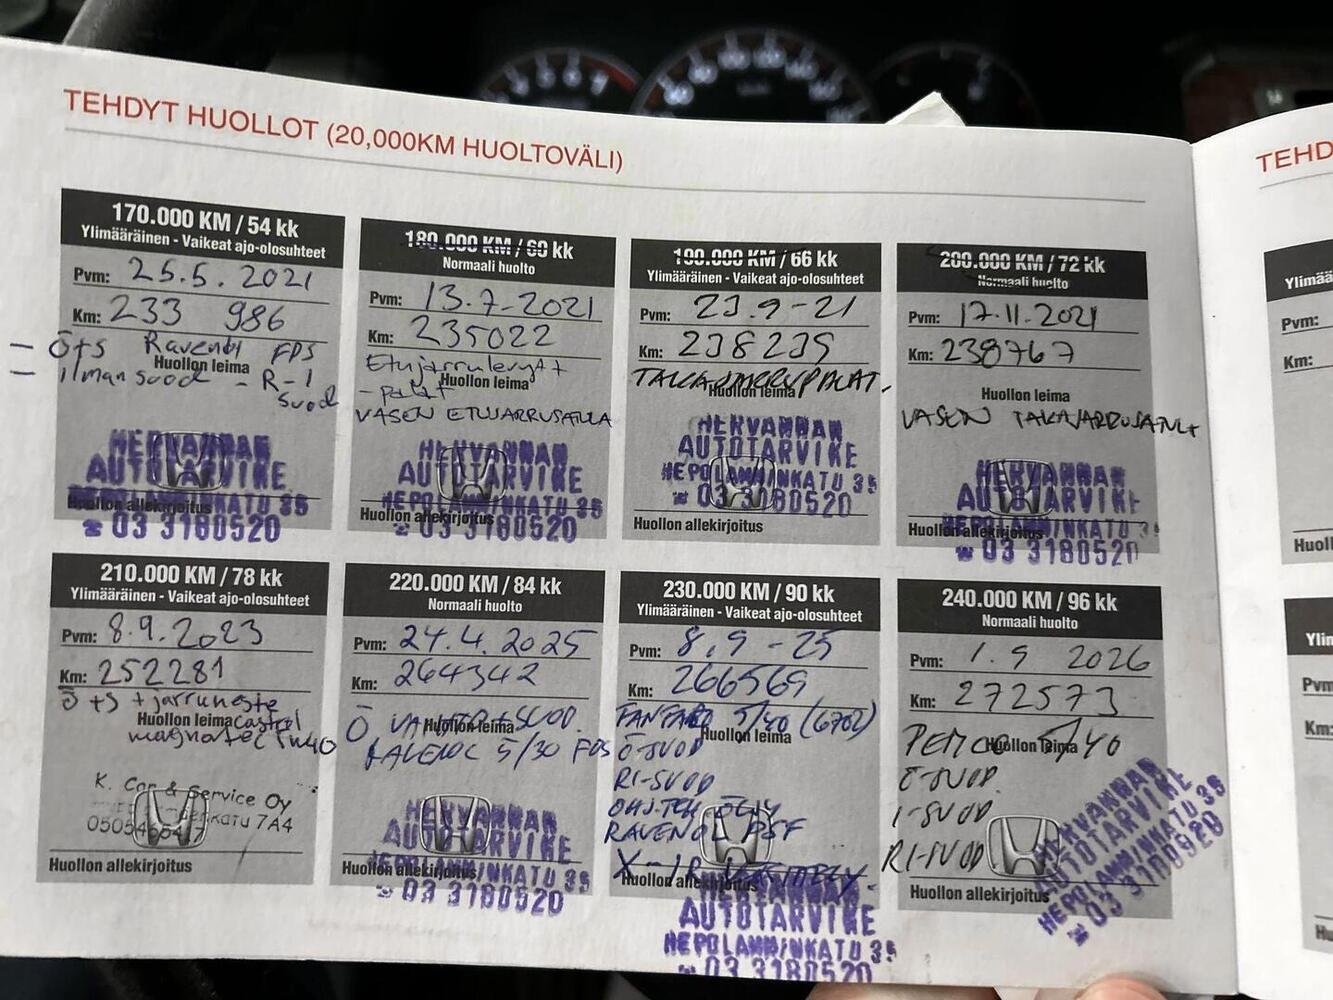 TEHDYT HUOLLOT (20,000KM HUOLTOVÄLI)
170.000 KM / 54 kk
Ylimääräinen - Vaikeat ajo-olosuhteet
Pvm: 25.5.2021
Km: 233 986
- Ö+S Ravenol FDS
Huollon leima
- ilmansuod - R-i
suod
HERVANNAN
AUTOTARVIKE
HEPOLAMMINKATU 35
Huollon allekirjoitus
☎ 03 3180520
180.000 KM / 60 kk
Normaali huolto
Pvm: 13.7-2021
Km: 235022
Etujarrulevyt +
Huollon leima
-palat
VASEN ETUJARRUSATULA
HERVANNAN
AUTOTARVIKE
HEPOLAMMINKATU 35
Huollon allekirjoitus
☎ 03 3180520
190.000 KM / 66 kk
Ylimääräinen - Vaikeat ajo-olosuhteet
Pvm: 23.9-21
Km: 238235
TAKAJARRUPALAT.
Huollon leima
HERVANNAN
AUTOTARVIKE
HEPOLAMMINKATU 35
☎ 03 3180520
Huollon allekirjoitus
200.000 KM / 72 kk
Normaali huolto
Pvm: 17.11.2021
Km: 238767
Huollon leima
VASEN TAKAJARRUSATULA
HERVANNAN
AUTOTARVIKE
HEPOLAMMINKATU 35
Huollon allekirjoitus
☎ 03 3180520
210.000 KM / 78 kk
Ylimääräinen - Vaikeat ajo-olosuhteet
Pvm: 8.9.2023
Km: 252281
Ö+S + jarruneste
Huollon leima
castrol
magnatec
K. Car & Service Oy
7A4
Huollon allekirjoitus
220.000 KM / 84 kk
Normaali huolto
Pvm: 24.4.2025
Km: 264342
Ö VAIHTO+SUOD.
Huollon leima
RAVENOL 5/30 FDS
HERVANNAN
AUTOTARVIKE
HEPOLAMMINKATU 35
Huollon allekirjoitus
☎ 03 3180520
230.000 KM / 90 kk
Ylimääräinen - Vaikeat ajo-olosuhteet
Pvm: 8.9-25
Km: 266569
FANFARO 5/40 (6702)
Huollon leima
Ö-SUOD
RI-SUOD
OHJ.TEH ÖLJY
RAVENOL PSF
Huollon allekirjoitus
HERVANNAN
AUTOTARVIKE
HEPOLAMMINKATU 35
☎ 03 3180520
240.000 KM / 96 kk
Normaali huolto
Pvm: 1.9 2026
Km: 272573
PEMCO 5/40
Huollon leima
Ö-SUOD
I-SUOD
RI-SUOD
HERVANNAN
AUTOTARVIKE
HEPOLAMMINKATU 35
☎ 03 3180520
Huollon allekirjoitus
TEHD
Pvm:
Km:
Pvm
Km: